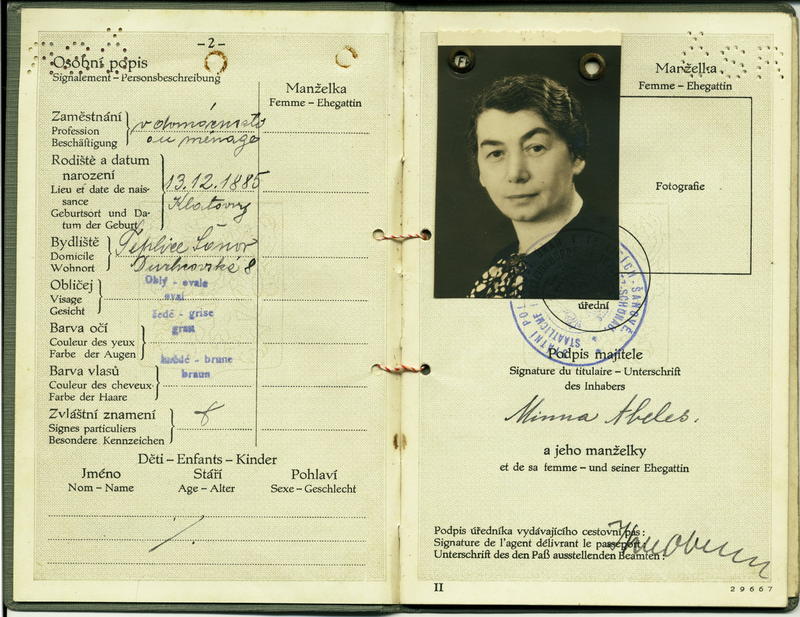 -2-
Osobní popis
Signalement – Personsbeschreibung
Manželka
Femme – Ehegattin
Zaměstnání
Profession
Beschäftigung
v domácnosti
au ménage
Rodiště a datum
narození
Lieu et date de nais-
sance
Geburtsort und Da-
tum der Geburt
13.12.1885
Klatovy
Bydliště
Domicile
Wohnort
Teplice Šanov
Obličej
Visage
Gesicht
Oblý - ovale
oval
Barva očí
Couleur des yeux
Farbe der Augen
šedé - grise
grau
Barva vlasů
Couleur des cheveux
Farbe der Haare
hnědé - brune
braun
Zvláštní znamení
Signes particuliers
Besondere Kennzeichen
Děti – Enfants – Kinder
Jméno Stáří Pohlaví
Nom – Name Age – Alter Sexe – Geschlecht
Manželka
Femme – Ehegattin
Fotografie
úřední
Podpis majitele
Signature du titulaire – Unterschrift
des Inhabers
Minna Abeles.
a jeho manželky
et de sa femme – und seiner Ehegattin
Podpis úředníka vydávajícího cestovní pas:
Signature de l'agent délivrant le passeport:
Unterschrift des den Paß ausstellenden Beamten:
II
29667